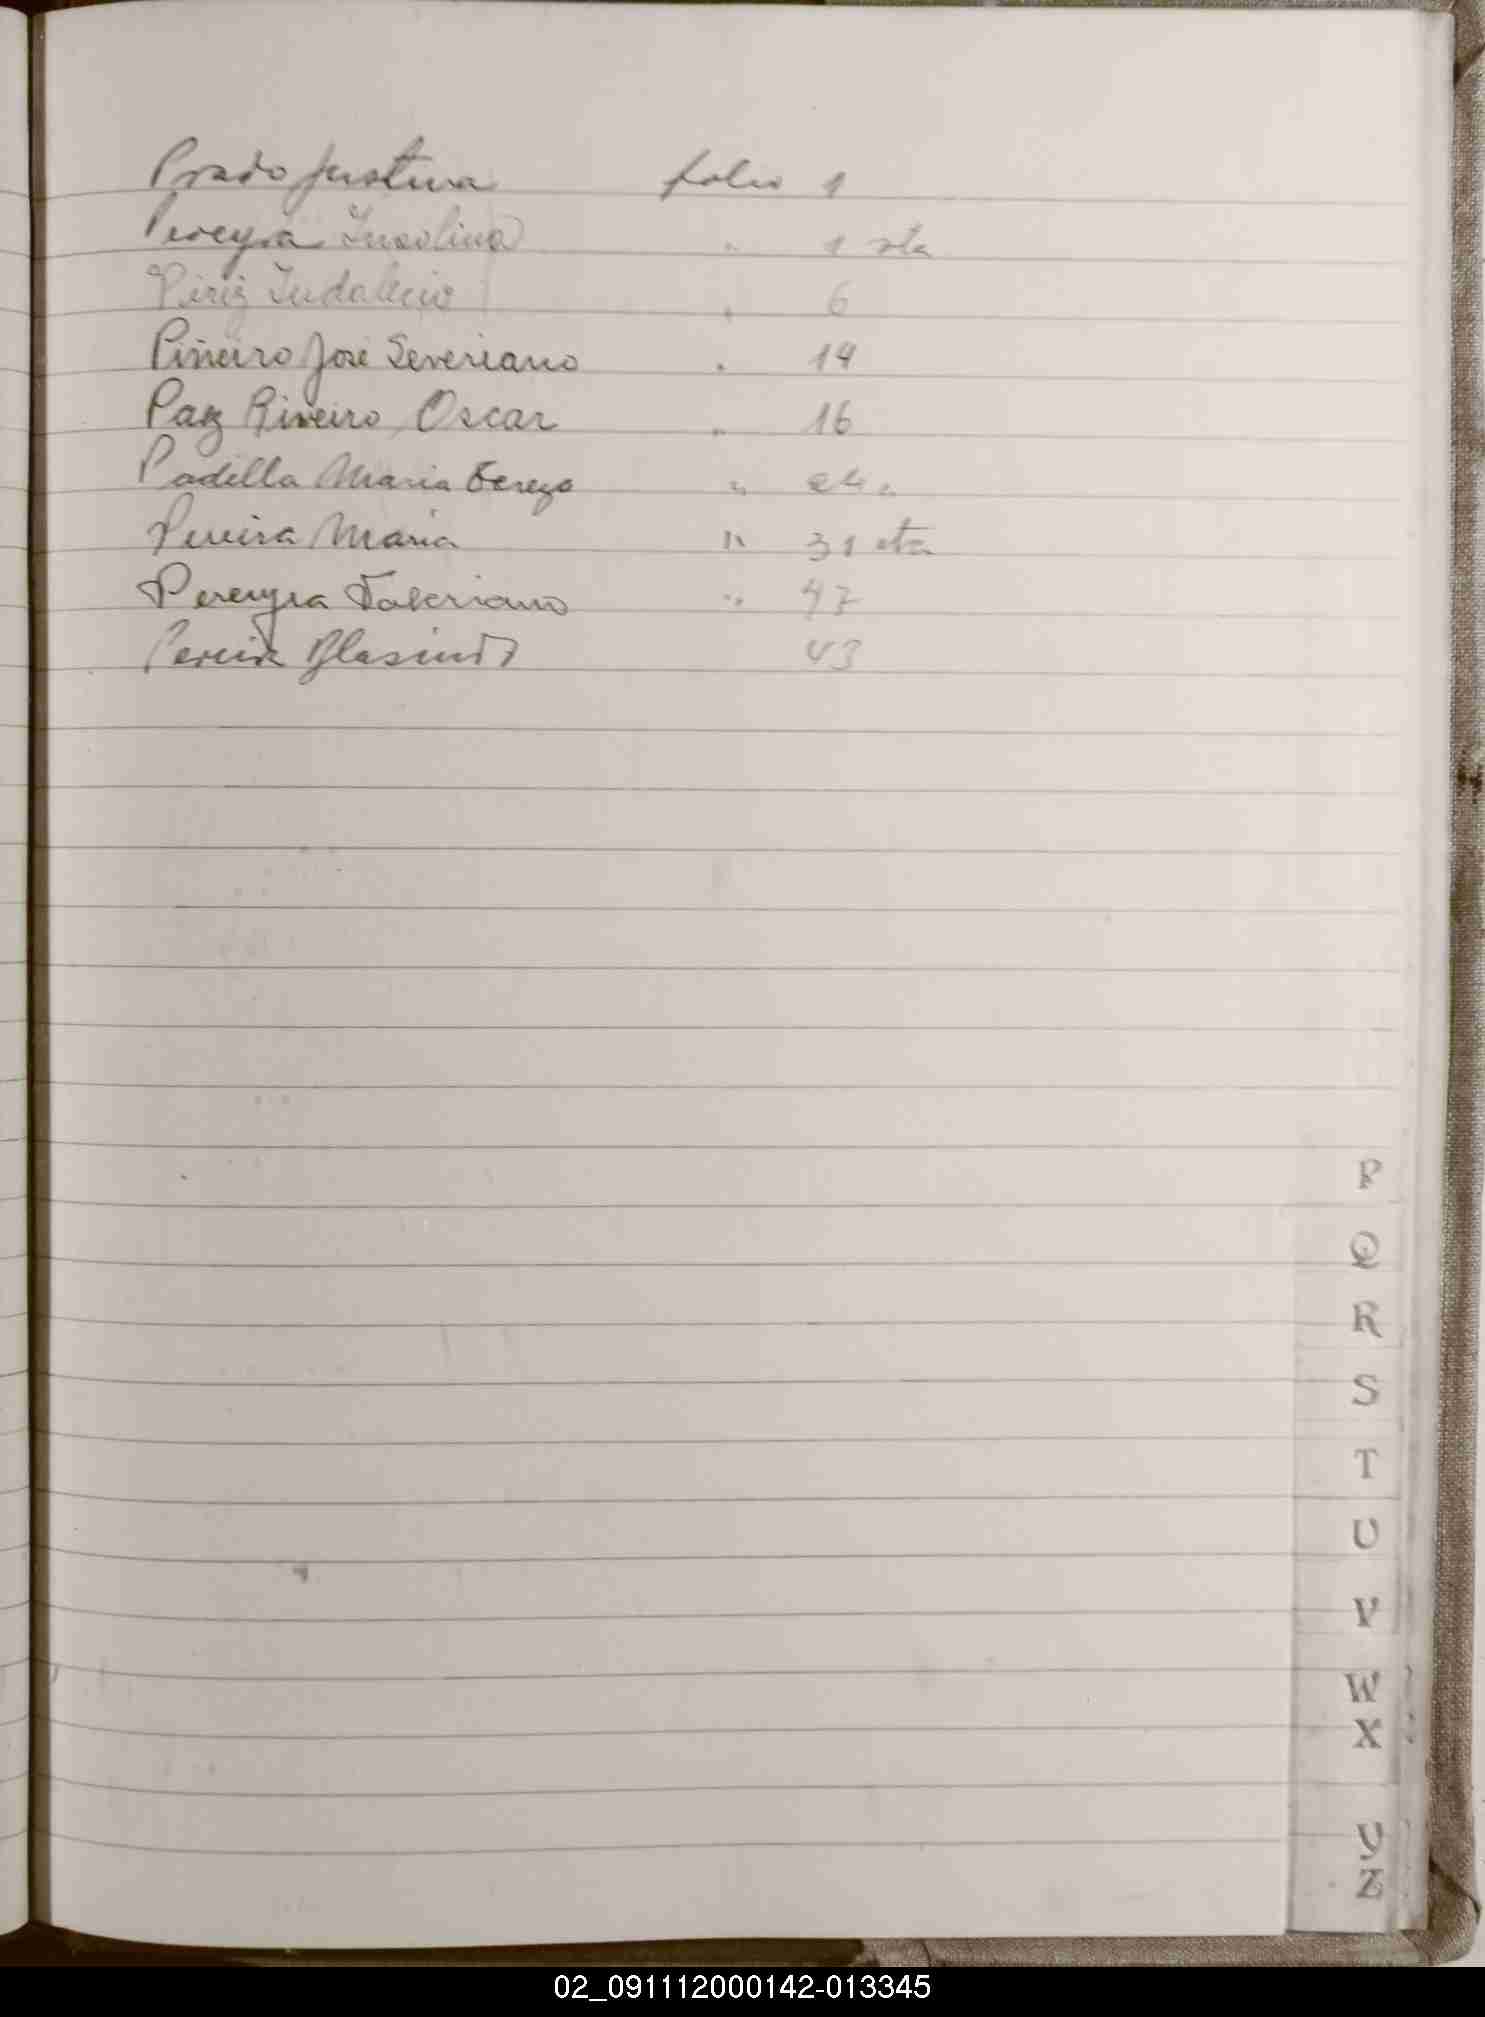 Prado Justina folio 1
Pereyra Ynsolina " 1 vta
Piriz Indalecio " 6
Piñeiro José Severiano " 14
Paz Riveiro Oscar " 16
Padilla Maria Tereza "
Pereira Maria " 31 vta
Pereyra Valeriano " 47
Pereira 43
P
Q
R
S
T
U
V
W
X
Y
Z
02_091112000142-013345